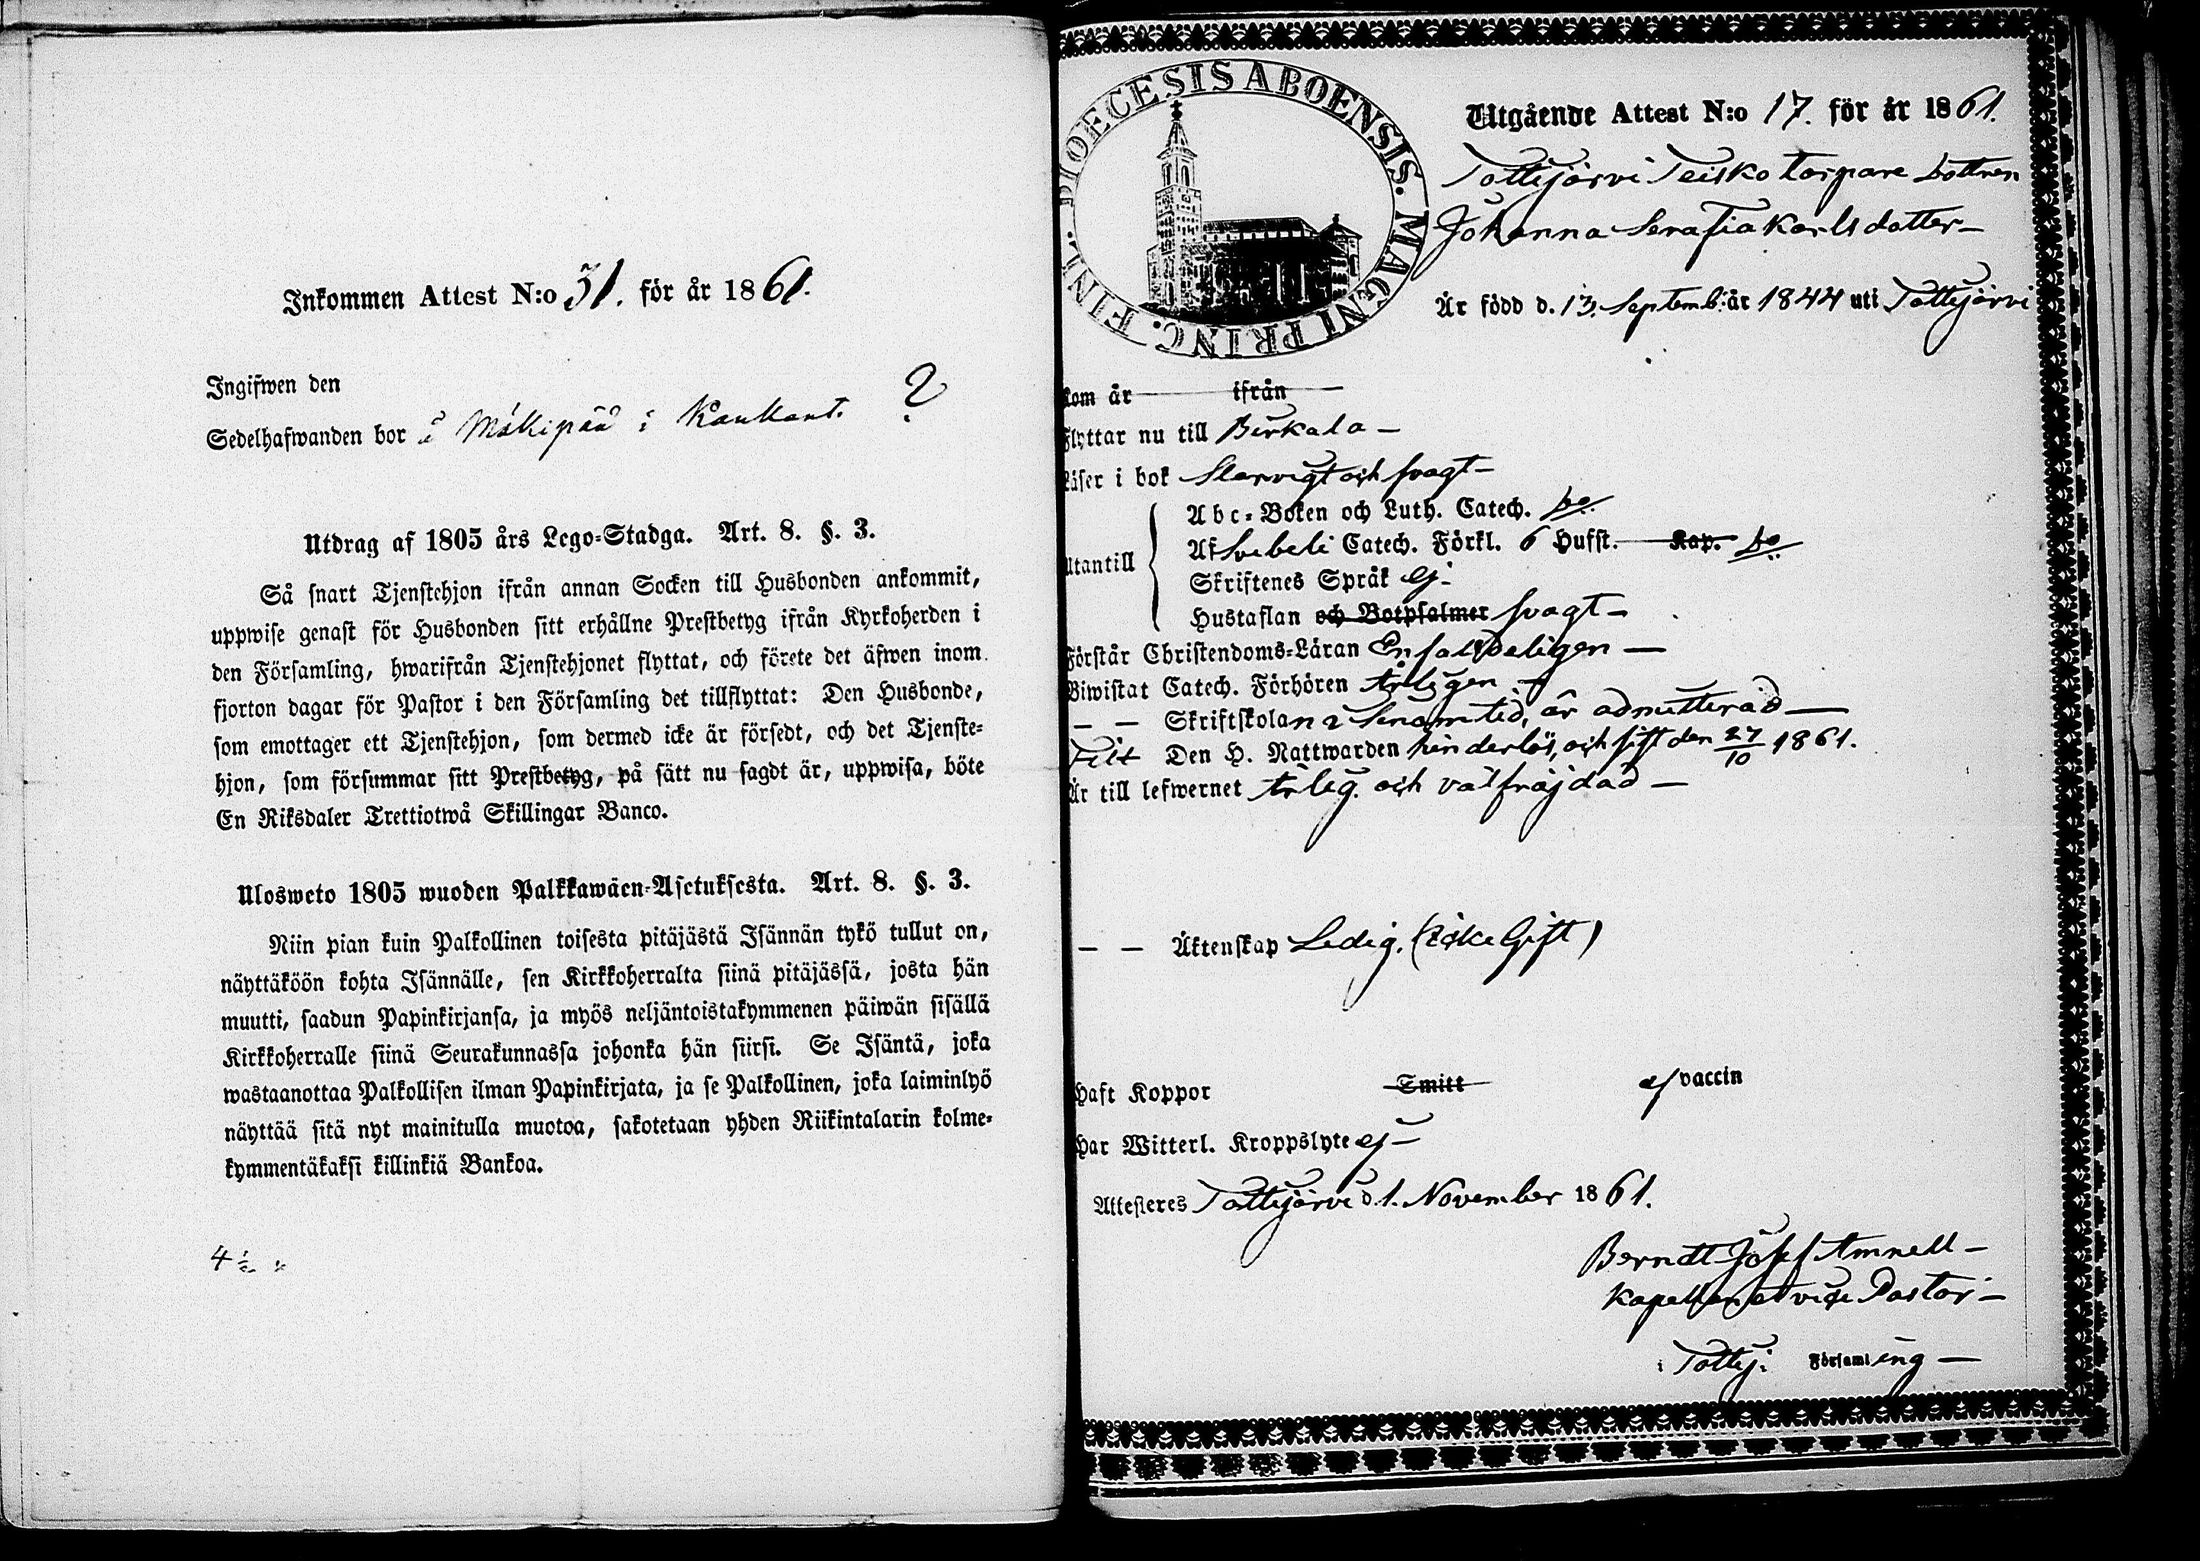 Inkommen Attest N:o 31. för år 1861.
Ingifwen den
Sedelhafwanden bor å Mäkipää i Kankant. ?
Utdrag af 1805 års Lego-Stadga. Art. 8. §. 3.
Så snart Tjenstehjon ifrån annan Socken till Husbonden ankommit,
uppwise genast för Husbonden sitt erhållne Prestbetyg ifrån Kyrkoherden i
den Församling, hwarifrån Tjenstehjonet flyttat, och förete det äfwen inom
fjorton dagar för Pastor i den Församling det tillflyttat: Den Husbonde,
som emottager ett Tjenstehjon, som dermed icke är försedt, och det Tjenste-
hjon, som försummar sitt Prestbetyg, på sätt nu sagdt är, uppwisa, böte
En Riksdaler Trettiotwå Skillingar Banco.
Ulosweto 1805 wuoden Palkkawäen-Asetuksesta. Art. 8. §. 3.
Niin pian kuin Palkollinen toisesta pitäjästä Isännän tykö tullut on,
näyttäköön kohta Isännälle, sen Kirkkoherralta siinä pitäjässä, josta hän
muutti, saadun Papinkirjansa, ja myös neljäntoistakymmenen päiwän sisällä
Kirkkoherralle siinä Seurakunnassa johonka hän siirsi. Se Isäntä, joka
wastaanottaa Palkollisen ilman Papinkirjata, ja se Palkollinen, joka laiminlyö
näyttää sitä nyt mainitulla muotoa, sakotetaan yhden Riikintalarin kolme-
kymmentäkaksi killinkiä Bankoa.
DIOECESIS ABOENSIS. MAGNI PRINC. FINL.
Utgående Attest N:o 17. för år 1861.
Tottijärvi Teisko torpare dottren
Johanna Serafia Karlsdotter
Är född d. 13. Septemb: år 1844 uti Tottijärvi
kom år ifrån
Flyttar nu till Birkala
Läser i bok Slarvigt och svagt
Utantill
Abc-Boken och Luth. Catech. do.
Af Svebeli Catech. Förkl. 6 Hufst. Kap. do
Skriftenes Språk ej
Hustaflan och Botpsalmer svagt
Förstår Christendoms-Läran Enfaldeligen
Biwistat Catech. Förhören årligen
— — Skriftskolan i senam tid, är admitterad
Den H. Nattwarden hinderlös, och sist den 27/10 1861.
Är till lefwernet ärlig och välfräjdad
— — Äktenskap Ledig. (icke Gift)
Haft Koppor Smitt ej vaccin
Har Witterl. Kroppslyte ej
Attesteres Tottijärvi d. 1. November 1861.
Berndt Josef Amnell
Kapellan et vice Pastor
i Tottij: Församling